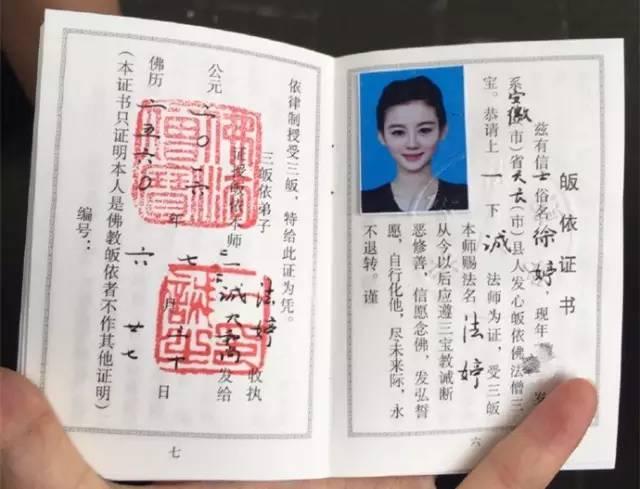 皈依证书
兹有信士俗名徐婷，现年 岁
系安徽(市)省天长(市)县人发心皈依佛法僧三
宝。恭请上一下诚法师为证，受三皈
本师赐法名法婷
从今以后应遵三宝教诫断
恶修善，信愿念佛，发弘誓
愿，自行化他，尽未来际，永
不退转。谨
六
依律制授受三皈，特给此证为凭。
三皈依弟子 法婷 收执
证授皈依本师 一诚 发给
公元二〇一六年七月 十日
佛历二五六〇 六 廿七
(本证书只证明本人是佛教皈依者不作其他证明)
编号：
七